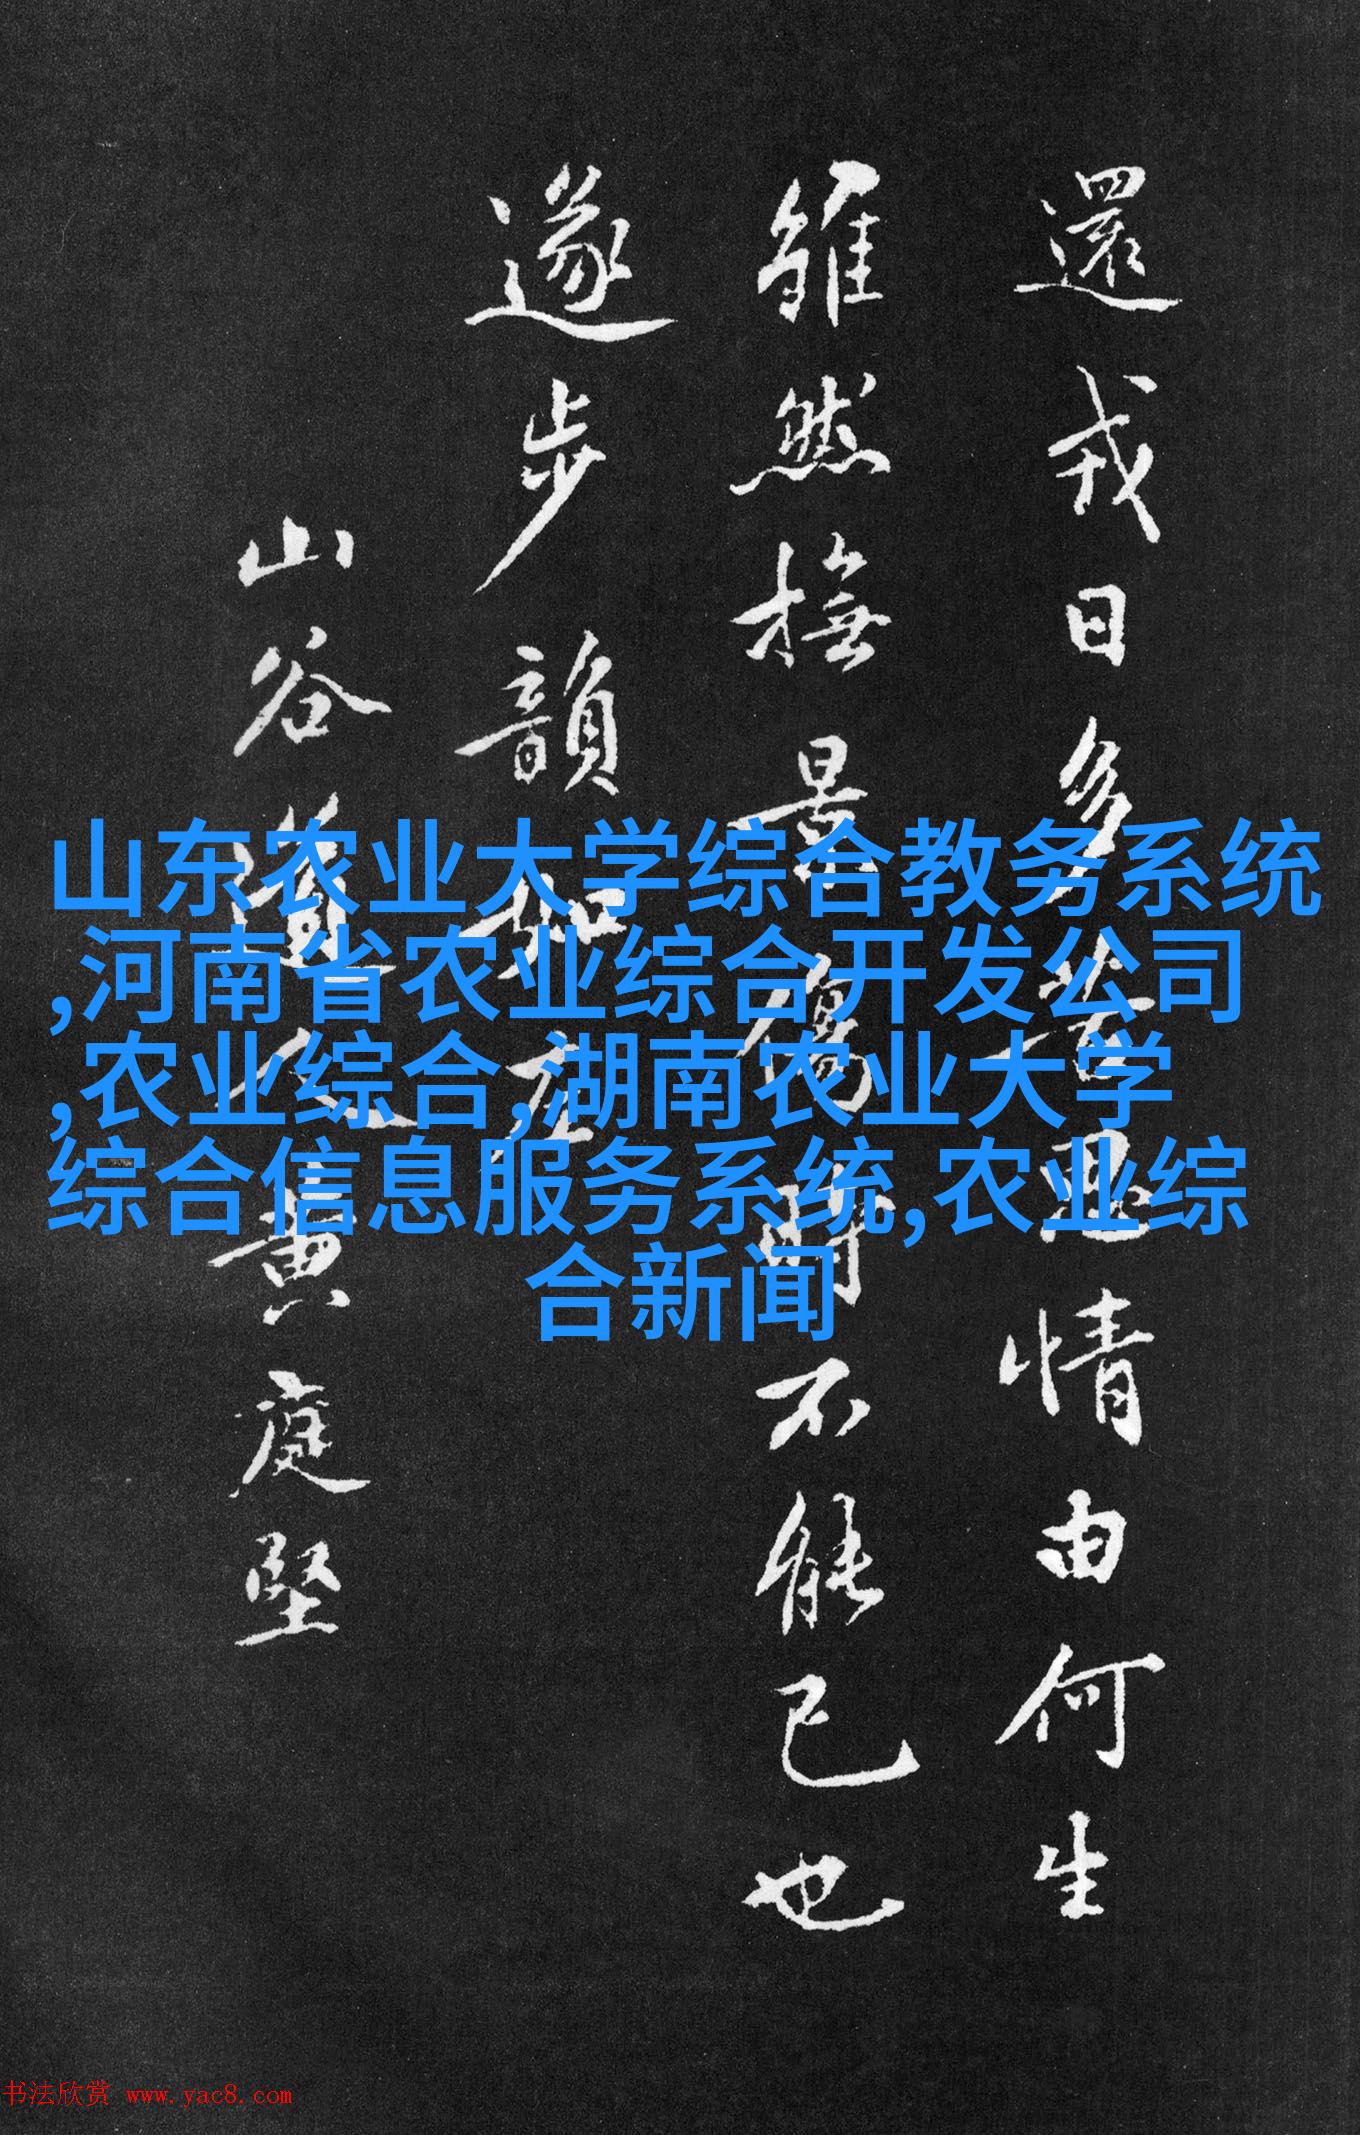 還戎日多苦思情由何生
雖然撫景傷時不能已也
遂步韻如左
山谷道人黄庭堅
山东农业大学综合教务系统
,河南省农业综合开发公司
,农业综合,湖南农业大学
综合信息服务系统,农业综
合新闻
书法欣赏 www.yac8.com